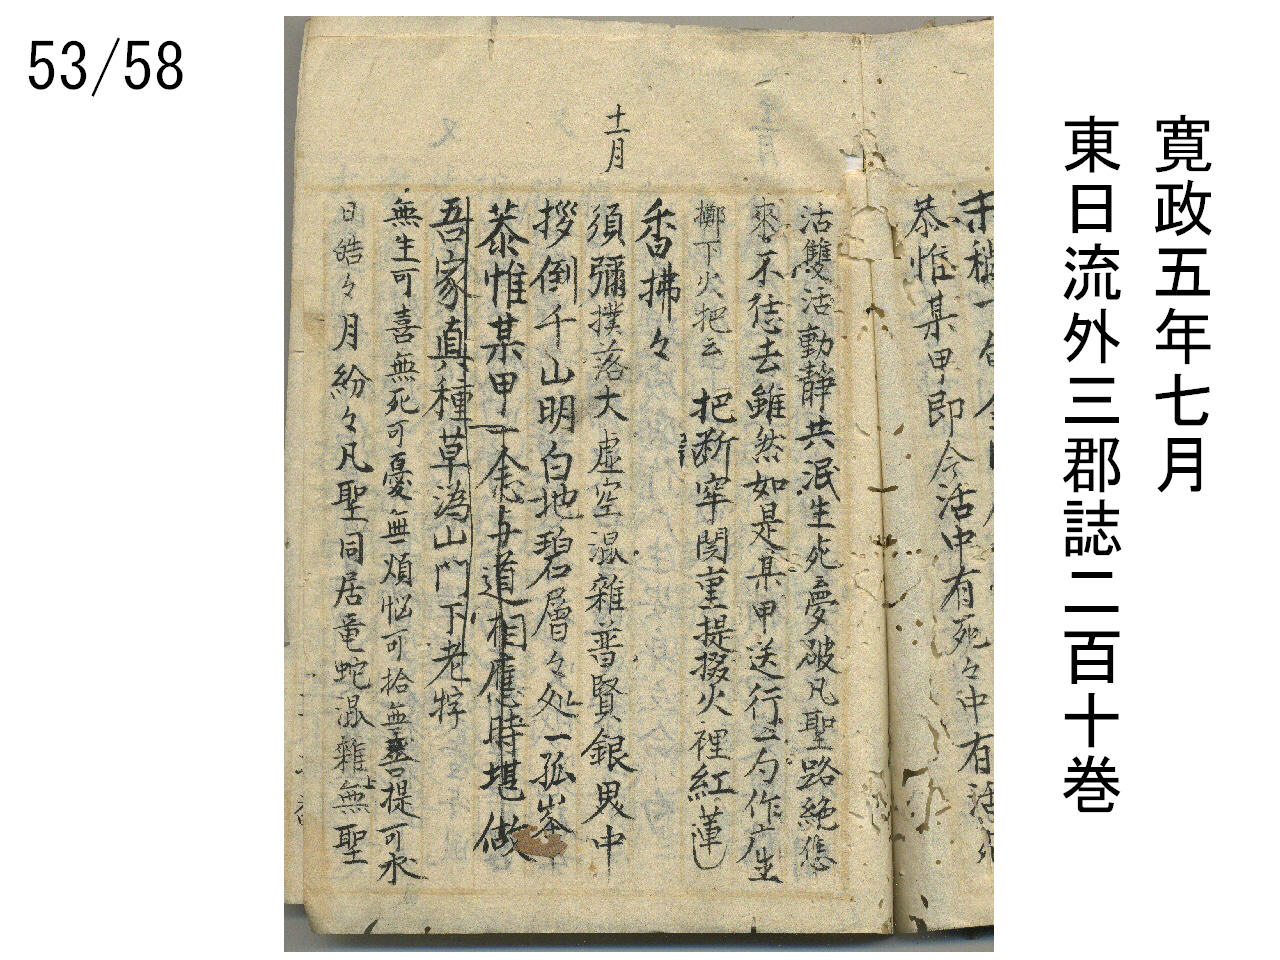 53/58
寛政五年七月
東日流外三郡誌二百十巻
恭惟某甲即今活中有死々中有活死
活雙活動静共泯生死夢破凡聖路絶恁
来不恁去雖然如是某甲送行一句作麼生
擲下火把云 把断牢関重提掇火裡紅蓮
香拂々
十一月
須彌撲落大虚空混雜普賢銀男中
拶倒千山明白地碧層々处一孤峯
恭惟某甲一念与道相應時堪做
吾家真種草為山門下老牸
無生可喜無死可憂無煩悩可捨無菩提可求
日皓々月紛々凡聖同居竜蛇混雜無聖